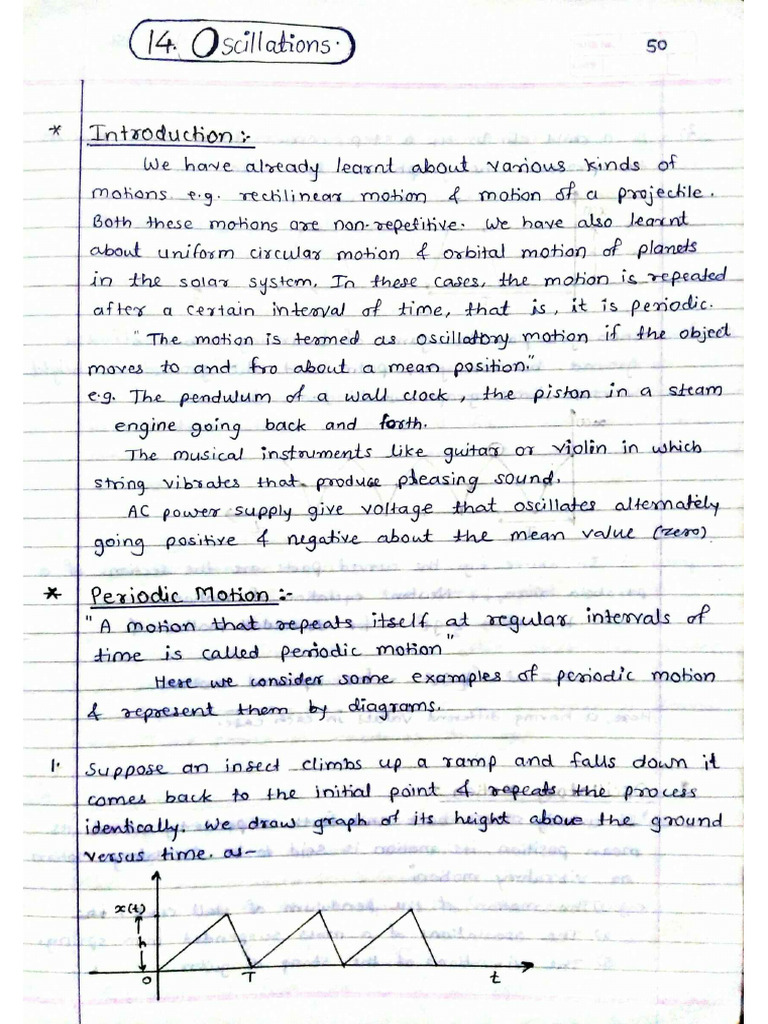 14. Oscillations.
50
* Introduction :-
We have already learnt about various kinds of
motions e.g. rectilinear motion & motion of a projectile.
Both these motions are non-repetitive. We have also learnt
about uniform circular motion & orbital motion of planets
in the solar system. In these cases, the motion is repeated
after a certain interval of time, that is, it is periodic.
"The motion is termed as oscillatory motion if the object
moves to and fro about a mean position."
e.g. The pendulum of a wall clock, the piston in a steam
engine going back and forth.
The musical instruments like guitar or violin in which
string vibrates that produce pleasing sound.
AC power supply give voltage that oscillates alternately
going positive & negative about the mean value (zero)
* Periodic Motion :-
"A motion that repeats itself at regular intervals of
time is called periodic motion"
Here we consider some examples of periodic motion
& represent them by diagrams.
1. Suppose an insect climbs up a ramp and falls down it
comes back to the initial point & repeats the process
identically. We draw graph of its height above the ground
versus time. as-
x(t)
h
O T t